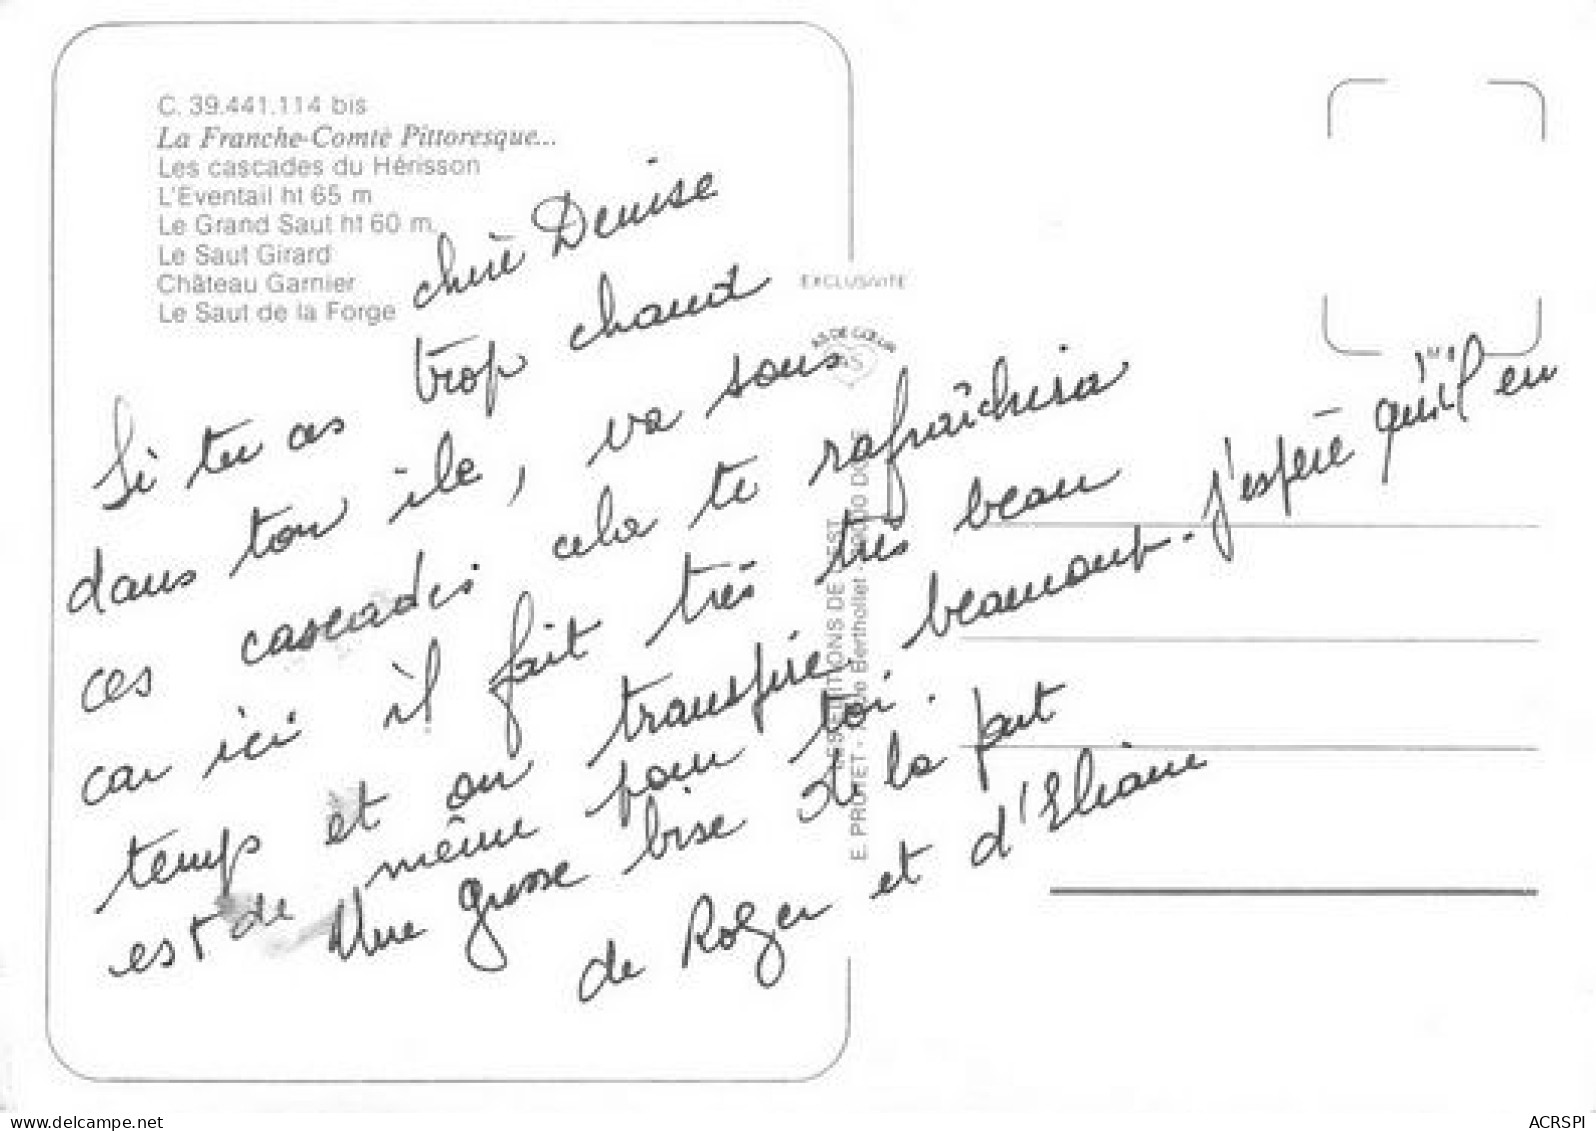 C. 39.441.114 bis
La Franche-Comté Pittoresque...
Les cascades du Hérisson
L'Eventail ht 65 m
Le Grand Saut ht 60 m.
Le Saut Girard
Château Garnier
Le Saut de la Forge
EXCLUSIVITÉ
AS DE CŒUR
LES EDITIONS DE L'EST
E. PROTET - rue Berthollet
chère Denise
Si tu as trop chaud
dans ton ile, va sous
ces cascades cela te rafraîchira
car ici il fait très très beau
temps et on transpire beaucoup. j'espère qu'il en
est de même pour toi.
Une grosse bise de la part
de Roger et d'Eliane
delcampe.net
ACRSPI